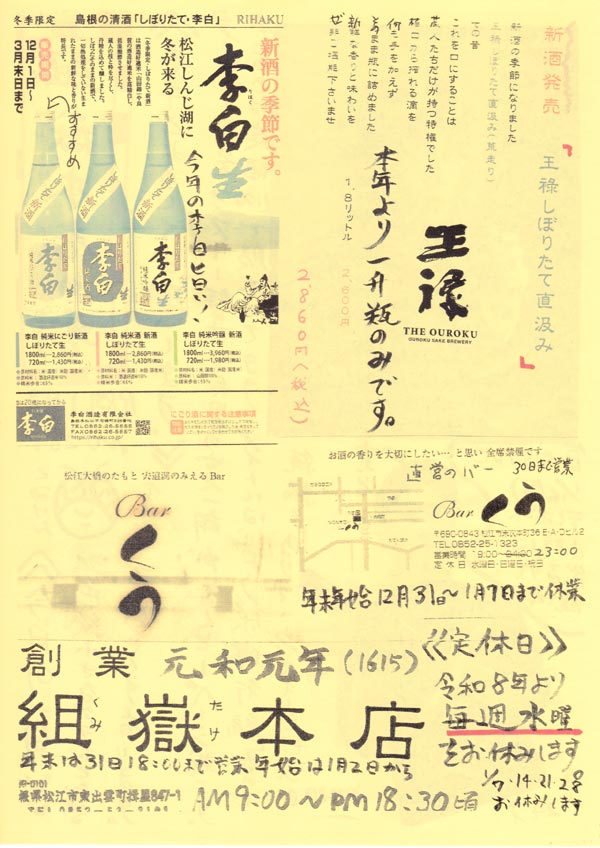 冬季限定 島根の清酒「しぼりたて・李白」 RIHAKU
新酒の季節です。
李白
りはく
生
松江しんじ湖に
冬が来る
12月1日~
3月末日まで
おすすめ
今年の李白旨い!
李白 純米にごり新酒
しぼりたて生
1800ml…2,860円(税込)
720ml…1,430円(税込)
李白 純米酒 新酒
しぼりたて生
1800ml…2,860円(税込)
720ml…1,430円(税込)
李白 純米吟醸 新酒
しぼりたて生
1800ml…3,960円(税込)
720ml…1,980円(税込)
お酒は20歳になってから。
李白
李白酒造有限会社
https://rihaku.co.jp/
にごり酒に関する注意事項
新酒発売
「王祿しぼりたて直汲み」
新酒の季節になりました
王祿しぼりたて直汲み(荒走り)
これを口にすることは
蔵人たちだけが持つ特権でした
槽口から搾れる滴を
何も手を加えず
そのまま瓶に詰めました
新鮮な香りと味わいを
ぜひご堪能下さいませ
1.8リットル
2,600円
2,860円(税込)
本年より一升瓶のみです。
王祿
THE OUROKU
OUROKU SAKE BREWERY
松江大橋のたもと 宍道湖のみえる Bar
Bar
くう
お酒の香りを大切にしたい…と思い 全席禁煙です
直営のバー 30日まで営業
Bar くう
〒690-0843 松江市末次本町36 E・Aのビル2
TEL0852-25-1323
営業時間 19:00~04:00 23:00
定休日 水曜日・日曜日・祝日
年末年始12月31日~1月7日まで休業
創業 元和元年(1615)
組嶽本店
くみ たけ
年末は31日18:00まで営業 年始は1月2日から
島根県松江市東出雲町揖屋847-1
AM9:00~PM18:30頃
《定休日》
令和8年より
毎週水曜
をお休みします
1/7・14・21・28
お休みします